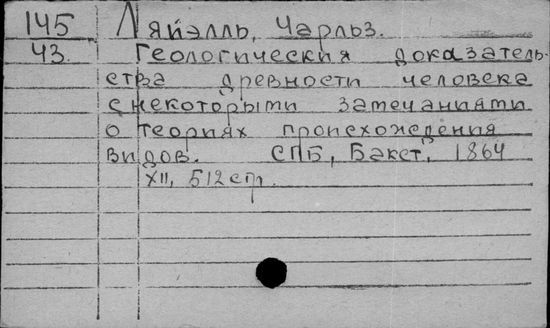 145 Ляйэлль, Чарльз.
43. Геологическия доказатель-
ства древности человека
с некоторыми замечаниями
о теориях происхождения
видов. СПБ, Бакст, 1864
XII, 512 стр.